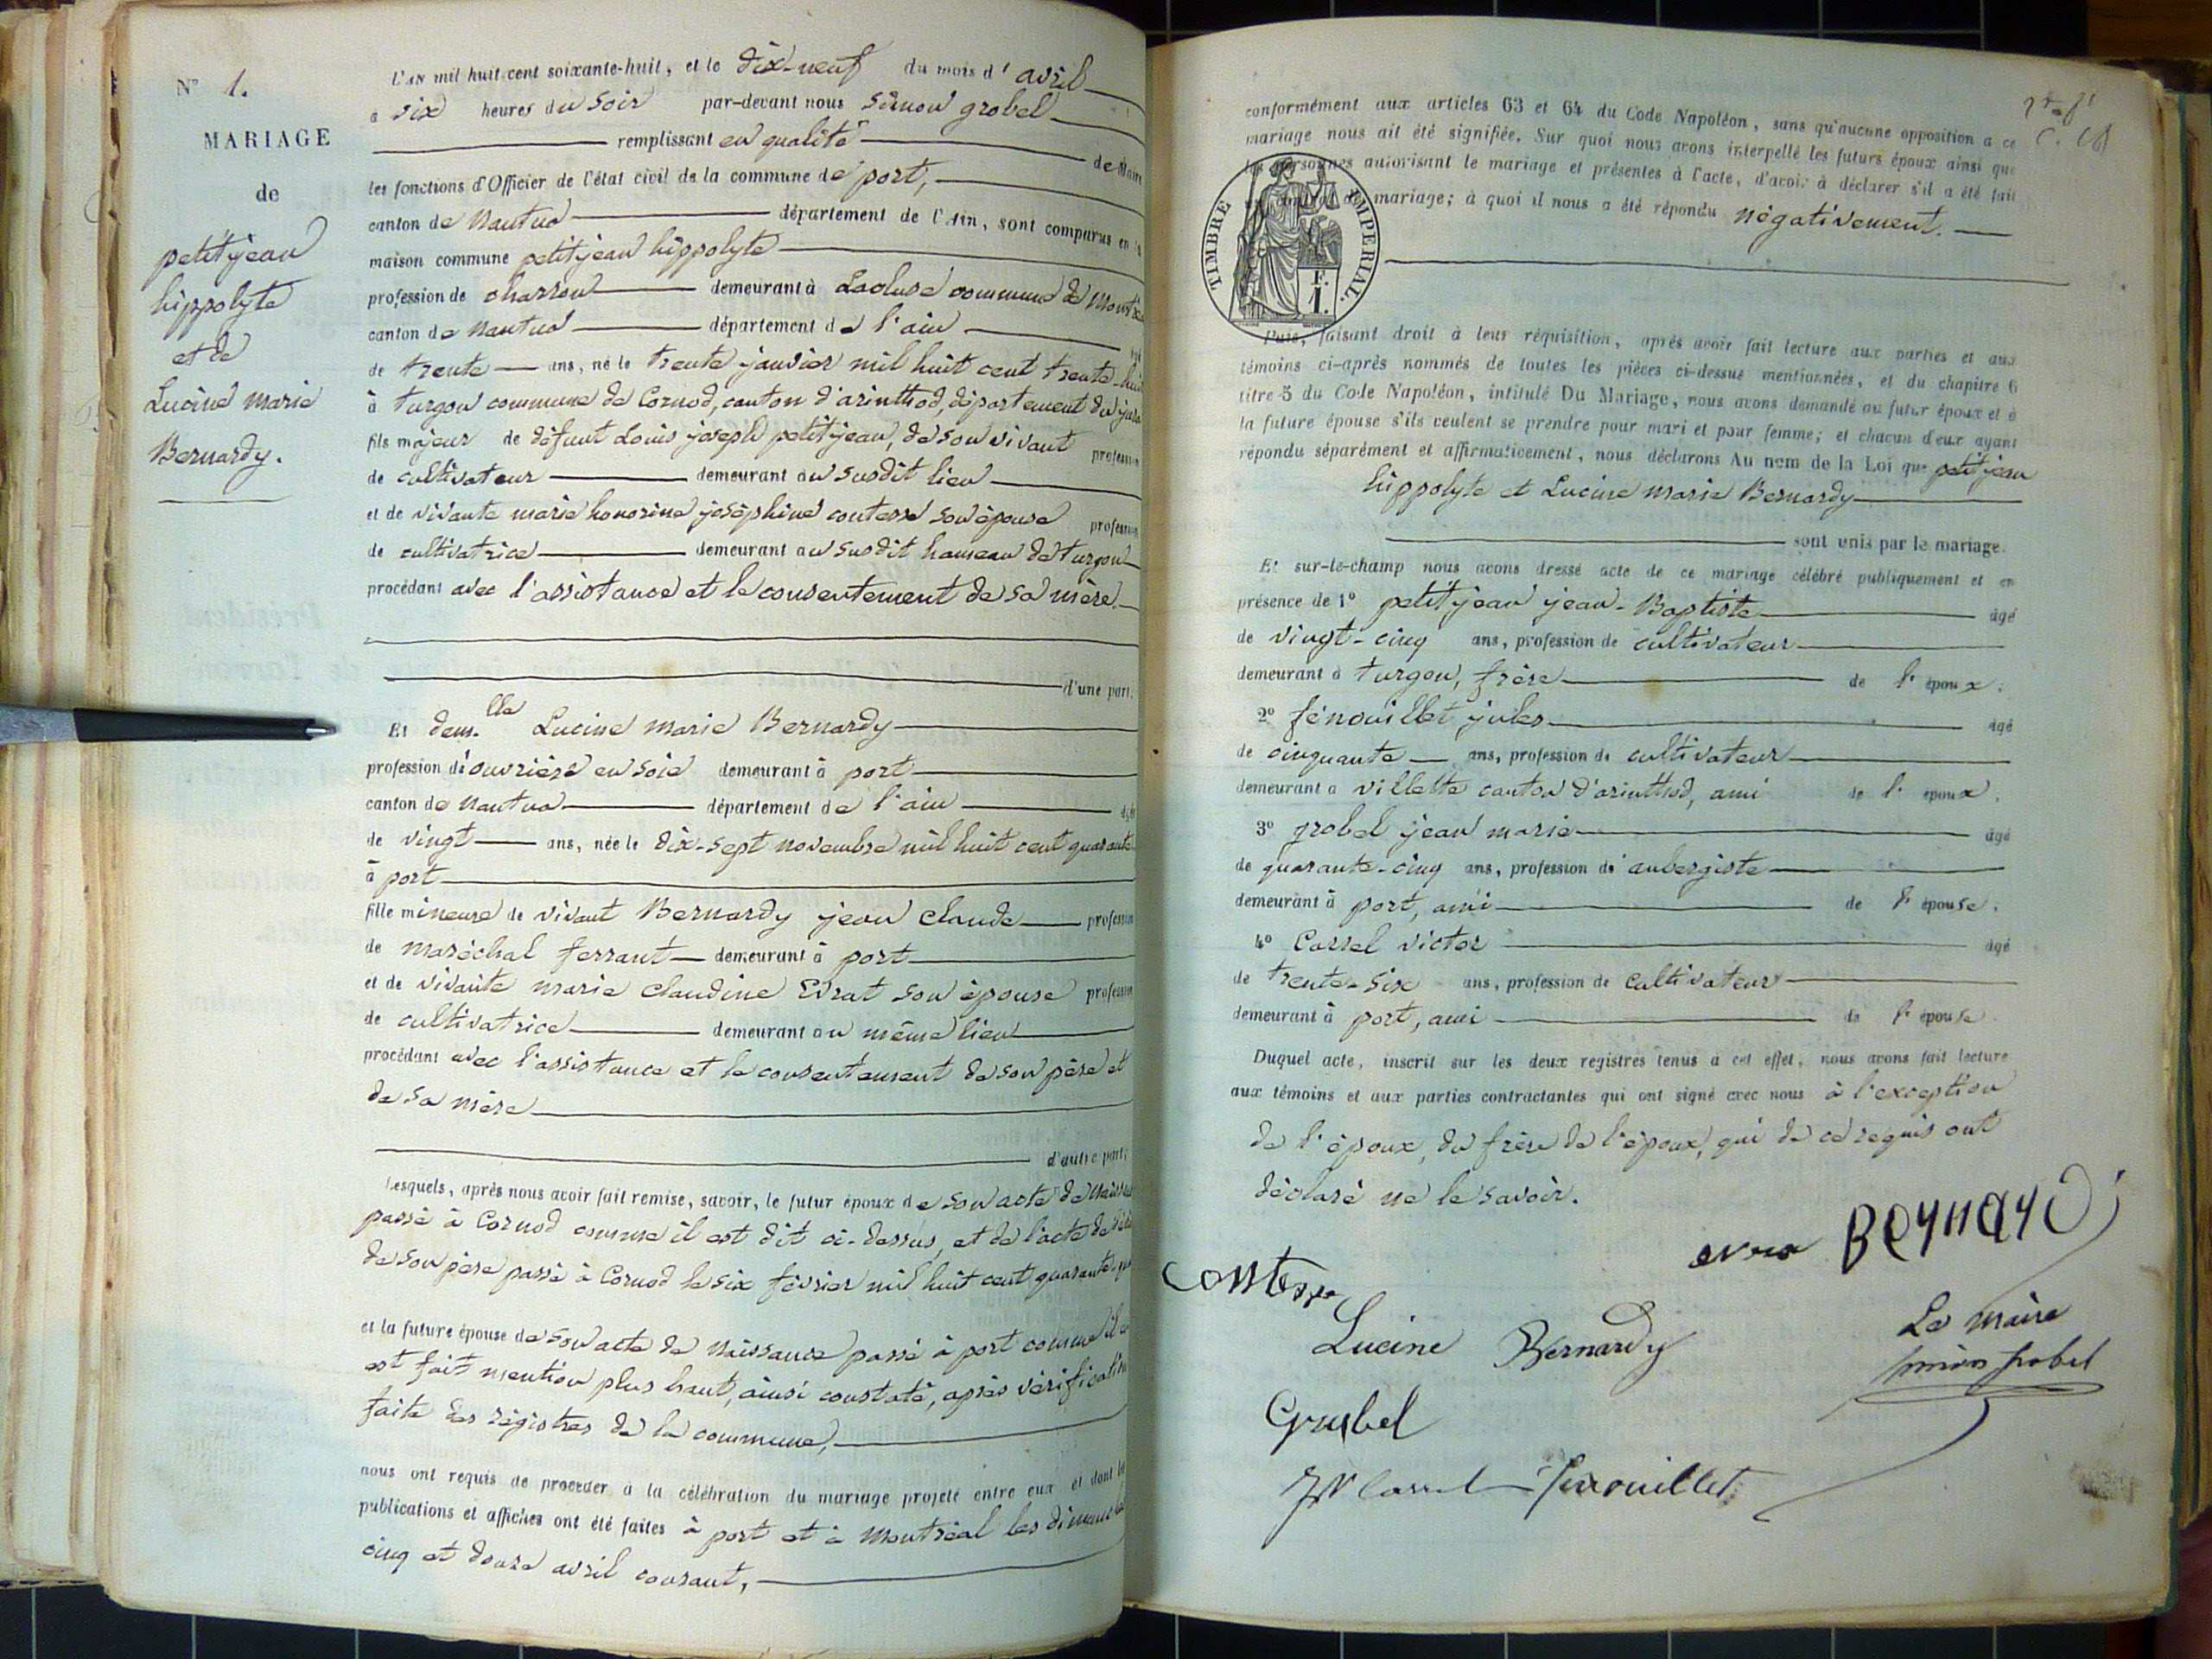 N° 1.
MARIAGE
de
petitjean
hippolyte
et de
Lucine marie
Bernardy.
L'AN mil huit cent soixante-huit, et le dix-neuf du mois d'avril
a six heures du soir par-devant nous simon grobel
remplissant en qualité de Maire
les fonctions d'Officier de l'état civil de la commune de port,
canton de Nantua département de l'Ain, sont comparus en la
maison commune petitjean hippolyte
profession de charron demeurant à Lacluse commune de
canton de Nantua département de l'ain
de trente ans, né le trente janvier mil huit cent trente-huit
à turgon commune de Cornod, canton d'arinthod, département du jura
fils majeur de défunt Louis joseph petitjean, de son vivant profession
de cultivateur demeurant au susdit lieu
et de vivante marie honorine joséphine contesse son épouse profession
de cultivatrice demeurant au susdit hameau de turgon
procédant avec l'assistance et le consentement de sa mère.
d'une part.
Et dem.lle Lucine marie Bernardy
profession d'ouvrière en soie demeurant à port
canton de Nantua département de l'ain
de vingt ans, née le dix-sept novembre mil huit cent quarante
à port
fille mineure de vivant Bernardy jean claude profession
de maréchal ferrant demeurant à port
et de vivante marie claudine Evrat son épouse profession
de cultivatrice demeurant au même lieu
procédant avec l'assistance et le consentement de son père et
de sa mère
d'autre part;
Lesquels, après nous avoir fait remise, savoir, le futur époux de son acte de
passé à Cornod comme il est dit ci-dessus, et de l'acte de
de son père passé à Cornod le six février mil huit cent
et la future épouse de son acte de naissance passé à port comme il
est fait mention plus haut, ainsi constaté, après vérification
faite des régistres de la commune,
nous ont requis de procéder à la célébration du mariage projeté entre eux et dont les
publications et affiches ont été faites à port et à Montréal les
cinq et douze avril courant,
conformément aux articles 63 et 64 du Code Napoléon, sans qu'aucune opposition a ce
mariage nous ait été signifiée. Sur quoi nous avons interpellé les futurs époux ainsi que
les personnes autorisant le mariage et présentes à l'acte, d'avoir à déclarer s'il a été fait
mariage; à quoi il nous a été répondu négativement.
TIMBRE IMPERIAL.
F.
1.
Puis, faisant droit à leur réquisition, après avoir fait lecture aux parties et aux
témoins ci-après nommés de toutes les pièces ci-dessus mentionnées, et du chapitre 6
titre 5 du Code Napoléon, intitulé Du Mariage, nous avons demandé au futur époux et à
la future épouse s'ils veulent se prendre pour mari et pour femme; et chacun d'eux ayant
répondu séparément et affirmativement, nous déclarons Au nom de la Loi que petitjean
hippolyte et Lucine marie Bernardy
sont unis par le mariage.
Et sur-le-champ nous avons dressé acte de ce mariage célébré publiquement et en
présence de 1° petitjean jean-Baptiste âgé
de vingt-cinq ans, profession de cultivateur
demeurant à turgon, frère de l'époux.
2° fénouillet jules âgé
de cinquante ans, profession de cultivateur
demeurant a villette canton d'arinthod, ami de l'époux.
3° grobel jean marie âgé
de quarante-cinq ans, profession d'aubergiste
demeurant à port, ami de l'épouse.
4° Carrel victor âgé
de trente-six ans, profession de cultivateur
demeurant à port, ami de l'épouse.
Duquel acte, inscrit sur les deux registres tenus a cet effet, nous avons fait lecture
aux témoins et aux parties contractantes qui ont signé avec nous à l'exception
de l'époux, du frère de l'époux, qui de ce requis ont
déclaré ne le savoir.
Bernardy
Lucine Bernardy
Le maire
Simon Grobel
Grobel
fenouillet